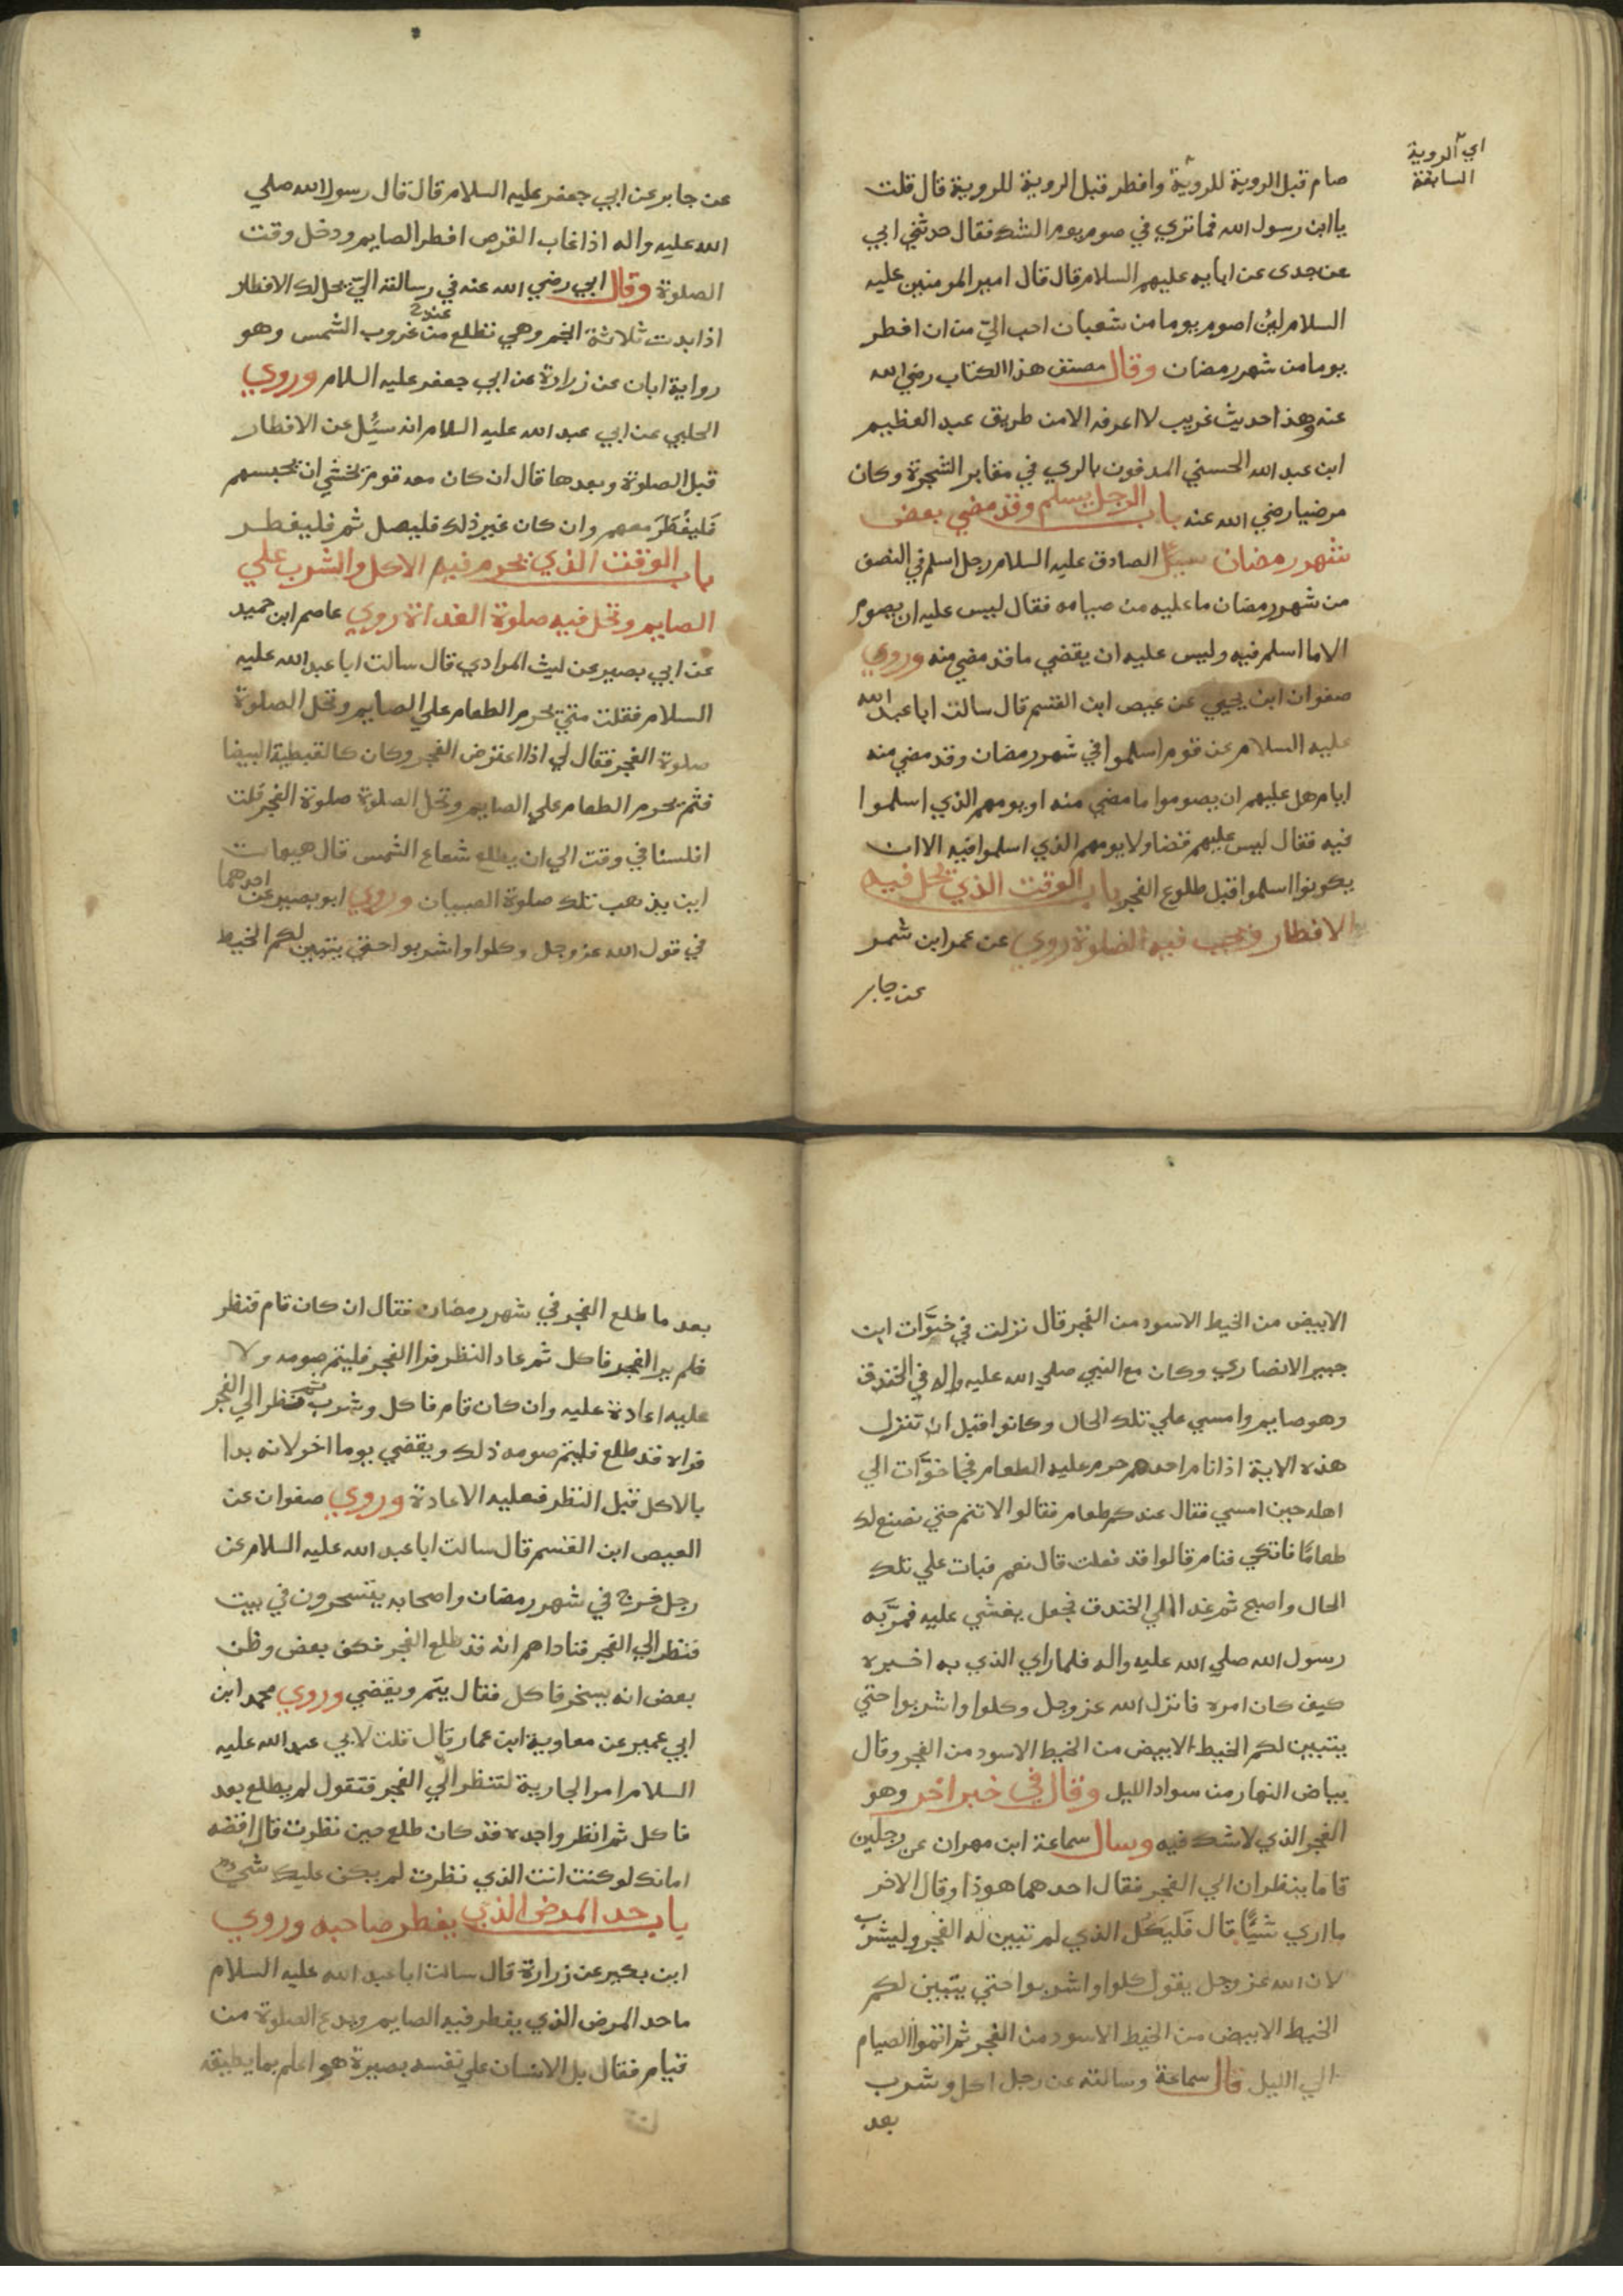 اي الروية
السابقة
صام قبل الروية للروية وافطر قبل الروية للروية قال قلت
يا ابن رسول الله فما تري في صوم يوم الشك فقال حدثني ابي
عن جدى عن ابايه عليهم السلام قال قال امير المومنين عليه
السلام لين اصوم يوما من شعبان احب الي من ان افطر
يوما من شهر رمضان وقال مصنف هذا الكتاب رضي الله
عنه وهذا حديث غريب لا اعرفه الا من طريق عبد العظيم
ابن عبد الله الحسني المدفون بالري في مقابر الشجرة وكان
مرضيا رضي الله عنه باب الرجل يسلم وقد مضي بعض
شهر رمضان سيل الصادق عليه السلام رجل اسلم في النصف
من شهر رمضان ما عليه من صيامه فقال ليس عليه ان يصوم
الا ما اسلم فيه وليس عليه ان يقضي ما قد مضي منه وروي
صفوان ابن يحيي عن عيص ابن القسم قال سالت ابا عبد الله
عليه السلام عن قوم اسلموا في شهر رمضان وقد مضي منه
ايام هل عليهم ان يصوموا ما مضي منه او يومهم الذي اسلموا
فيه فقال ليس عليهم قضا ولا يومهم الذي اسلموا فيه الا ان
يكونوا اسلموا قبل طلوع الفجر باب الوقت الذي يحل فيه
الافطار وتجب فيه الصلوة روي عن عمر ابن شمر
عن جابر
عن جابر عن ابي جعفر عليه السلام قال قال رسول الله صلي
الله عليه واله اذا غاب القرص افطر الصايم ودخل وقت
الصلوة وقال ابي رضي الله عنه في رسالته اليّ يحل لك الافطار
اذا بدت ثلاثة انجم وهي تطلع من عند غروب الشمس وهو
رواية ابان عن زرارة عن ابي جعفر عليه السلام وروي
الحلبي عن ابي عبد الله عليه السلام انه سيُل عن الافطار
قبل الصلوة وبعدها قال ان كان معه قوم يخشي ان يحبسهم
فَليفُطَرَ معهم وان كان غير ذلك فليصل ثم فليفطر
باب الوقت الذي يحرم فيه الاكل والشرب علي
الصايم وتحل فيه صلوة الغداة روي عاصم ابن حميد
عن ابي بصير عن ليث المرادي قال سالت ابا عبد الله عليه
السلام فقلت متي يحرم الطعام علي الصايم وتحل الصلوة
صلوة الفجر فقال لي اذا اعترض الفجر وكان كالقبطية البيضا
فثم يحرم الطعام علي الصايم وتحل الصلوة صلوة الفجر قلت
افلسنا في وقت الي ان يطلع شعاع الشمس قال هيهات
اين يذهب تلك صلوة الصبيان وروي ابو بصير عن احدهما
في قول الله عز وجل وكلوا واشربوا حتي يتبين لكم الخيط
الابيض من الخيط الاسود من الفجر قال نزلت في خوَّات ابن
جبير الانصاري وكان مع النبي صلي الله عليه واله في الخندق
وهو صايم وامسي علي تلك الحال وكانوا قبل ان تنزل
هذه الاية اذا نام احدهم حرم عليه الطعام فجا خوَّات الي
اهله حين امسي فقال عندكم طعام فقالوا لا تنم حتي نصنع لك
طعامًا فاتكي فنام قالوا قد فعلت قال نعم فبات علي تلك
الحال واصبح ثم غدا الي الخندق فجعل يغشي عليه فمرَّ به
رسول الله صلي الله عليه واله فلما راي الذي به اخبره
كيف كان امره فانزل الله عز وجل وكلوا واشربوا حتي
يتبين لكم الخيط الابيض من الخيط الاسود من الفجر وقال
بياض النهار من سواد الليل وقال في خبر اخر وهو
الفجر الذي لا شك فيه وسال سماعة ابن مهران عن رجلين
قاما ينظران الي الفجر فقال احدهما هو ذا وقال الاخر
ما اري شيًا قال فَليكُل الذي لم تبين له الفجر وليشرب
لان الله عز وجل يقول كلوا واشربوا حتي يتبين لكم
الخيط الابيض من الخيط الاسود من الفجر ثم اتموا الصيام
الي الليل قال سماعة وسالته عن رجل اكل وشرب
بعد
بعد ما طلع الفجر في شهر رمضان فقال ان كان قام فنظر
فلم ير الفجر فاكل ثم عاد النظر فرا الفجر فليتم صومه ولا
عليه اعادة عليه وان كان قام فاكل وشرب ثم نظر الي الفجر
فراه قد طلع فليتم صومه ذلك ويقضي يوما اخر لانه بدا
بالاكل قبل النظر فعليه الاعادة وروي صفوان عن
العيص ابن القسم قال سالت ابا عبد الله عليه السلام عن
رجل خرج في شهر رمضان واصحابه يتسحرون في بيت
فنظر الي الفجر فناداهم انه قد طلع الفجر فكف بعض وظن
بعض انه يسخر فاكل فقال يتم ويقضي وروي محمد ابن
ابي عمير عن معاوية ابن عمار قال قلت لابي عبد الله عليه
السلام امر الجارية لتنظر الي الفجر فتقول لم يطلع بعد
فاكل ثم انظر واجده قد كان طلع حين نظرت قال اقضه
اما انك لو كنت انت الذي نظرت لم يكن عليك شي
باب حد المرض الذي يفطر صاحبه وروي
ابن بكير عن زرارة قال سالت ابا عبد الله عليه السلام
ما حد المرض الذي يفطر فيه الصايم ويدع الصلوة من
قيام فقال بل الانسان علي نفسه بصيرة هو اعلم بما يطيقه